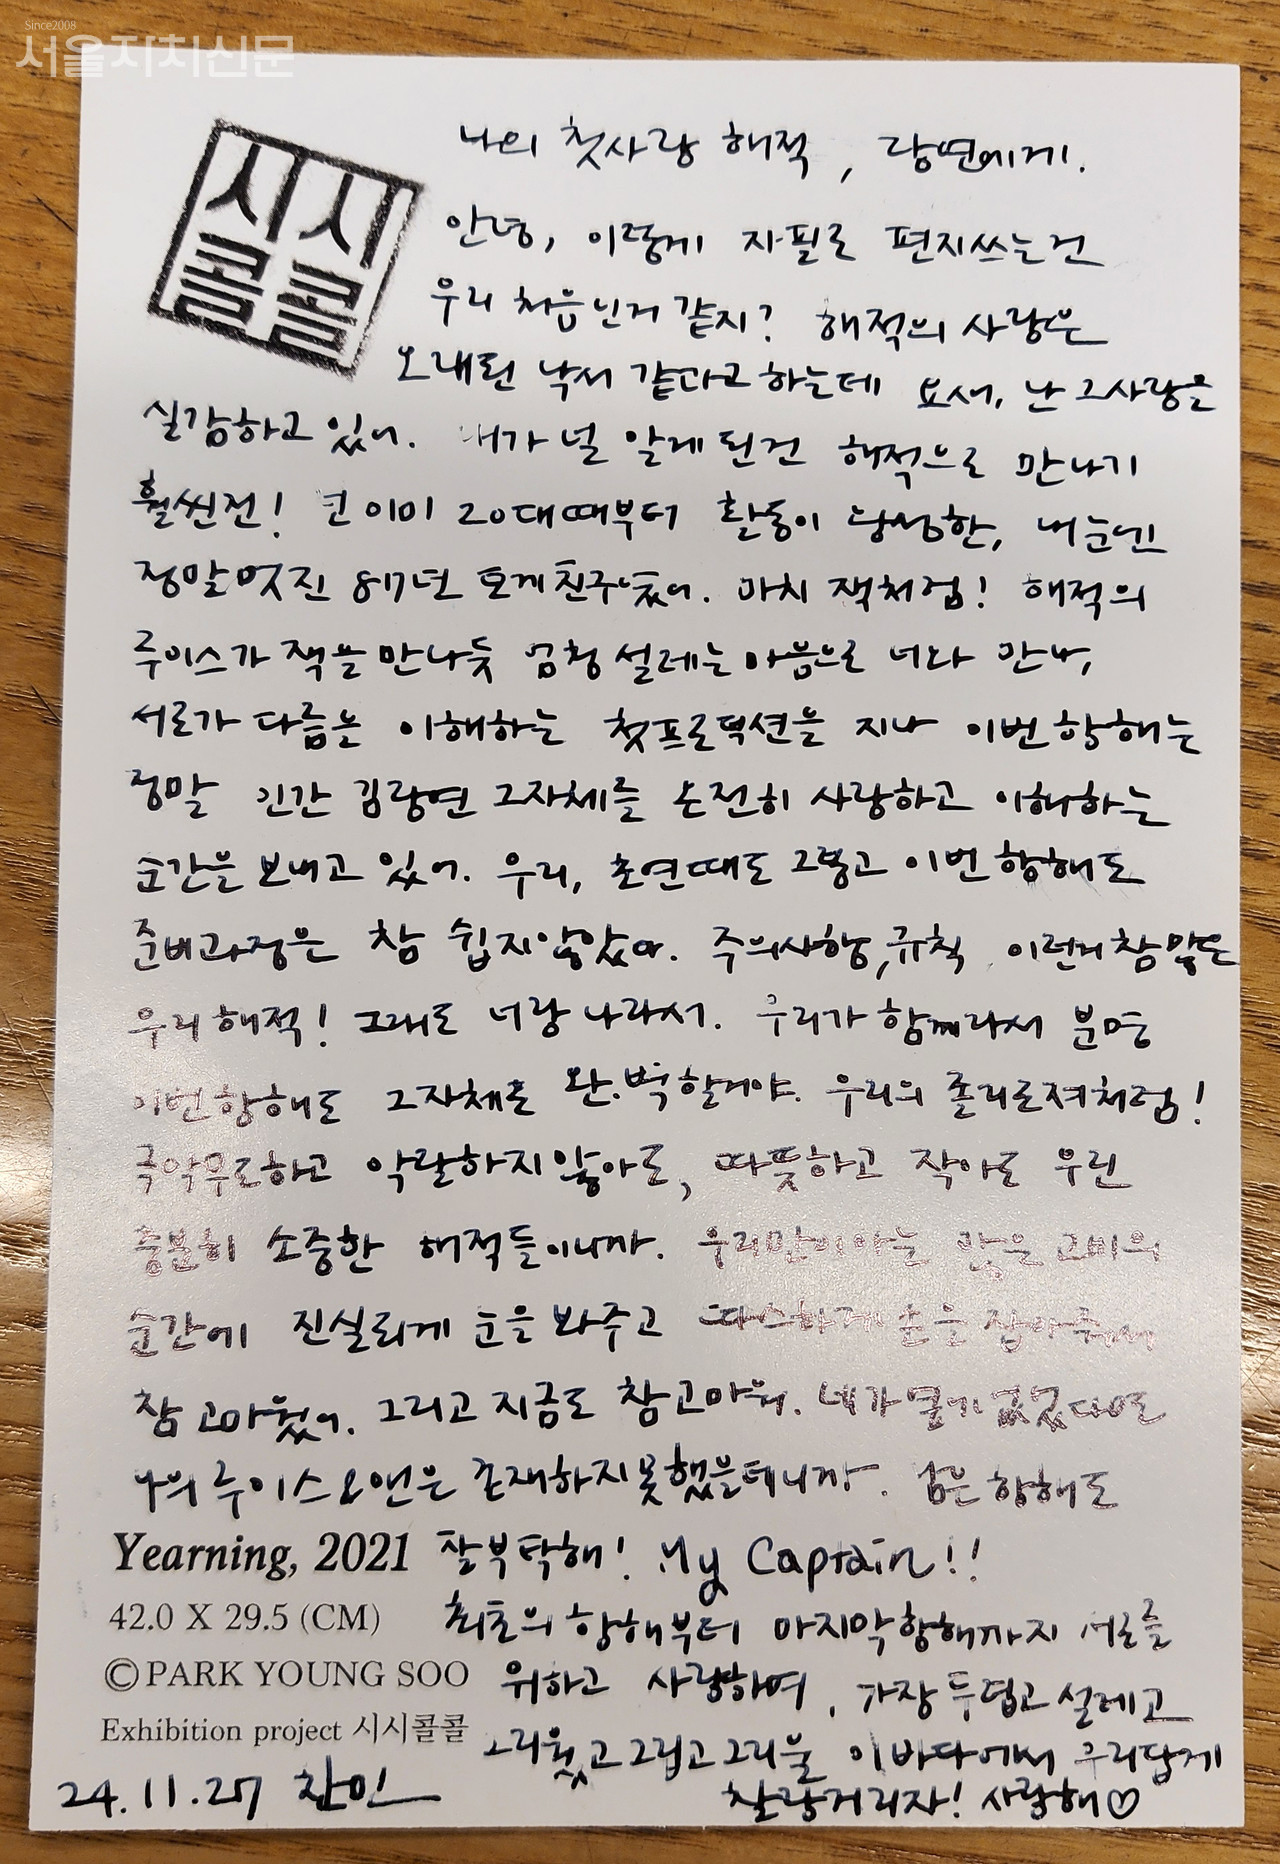 Since2008
서울자치신문
시시
콜콜
나의 첫사랑 해적, 랑연에게.
안녕, 이렇게 자필로 편지쓰는건
우리 처음인거 같지? 해적의 사랑은
오래된 낙서 같다고 하는데 요새, 난 그사랑을
실감하고 있어. 내가 널 알게 된건 해적으로 만나기
훨씬전! 넌 이미 20대때부터 활동이 왕성한, 내눈엔
정말멋진 87년 토끼친구였어. 마치 잭처럼! 해적의
루이스가 잭을 만나듯 엄청 설레는 마음으로 너와 만나,
서로가 다름을 이해하는 첫프로덕션을 지나 이번 항해는
정말 인간 김랑연 그자체를 온전히 사랑하고 이해하는
순간을 보내고 있어. 우리, 초연때도 그렇고 이번 항해도
준비과정은 참 쉽지않았다. 주의사항, 규칙 이런거 참 많은
우리 해적! 그래도 너랑 나라서. 우리가 함께라서 분명
이번항해도 그자체로 완.벽할거야. 우리의 졸리로져처럼!
극악무도하고 악랄하지않아도, 따뜻하고 작아도 우린
충분히 소중한 해적들이니까. 우리만이아는 많은 고비의
순간에 진실되게 눈을 봐주고 따스하게 손을 잡아줘서
참 고마웠어. 그리고 지금도 참 고마워. 네가 용기 없었다면
나의 루이스 & 앤은 존재하지못했을테니까. 남은 항해도
Yearning, 2021 잘부탁해! My Captain!!
42.0 X 29.5 (CM) 최초의 항해부터 마지막항해까지 서로를
©PARK YOUNG SOO 위하고 사랑하며, 가장 두렵고 설레고
Exhibition project 시시콜콜 그리웠고 그립고 그리울 이바다에서 우리답게
24.11.27 찬민 찰랑거리자! 사랑해♡